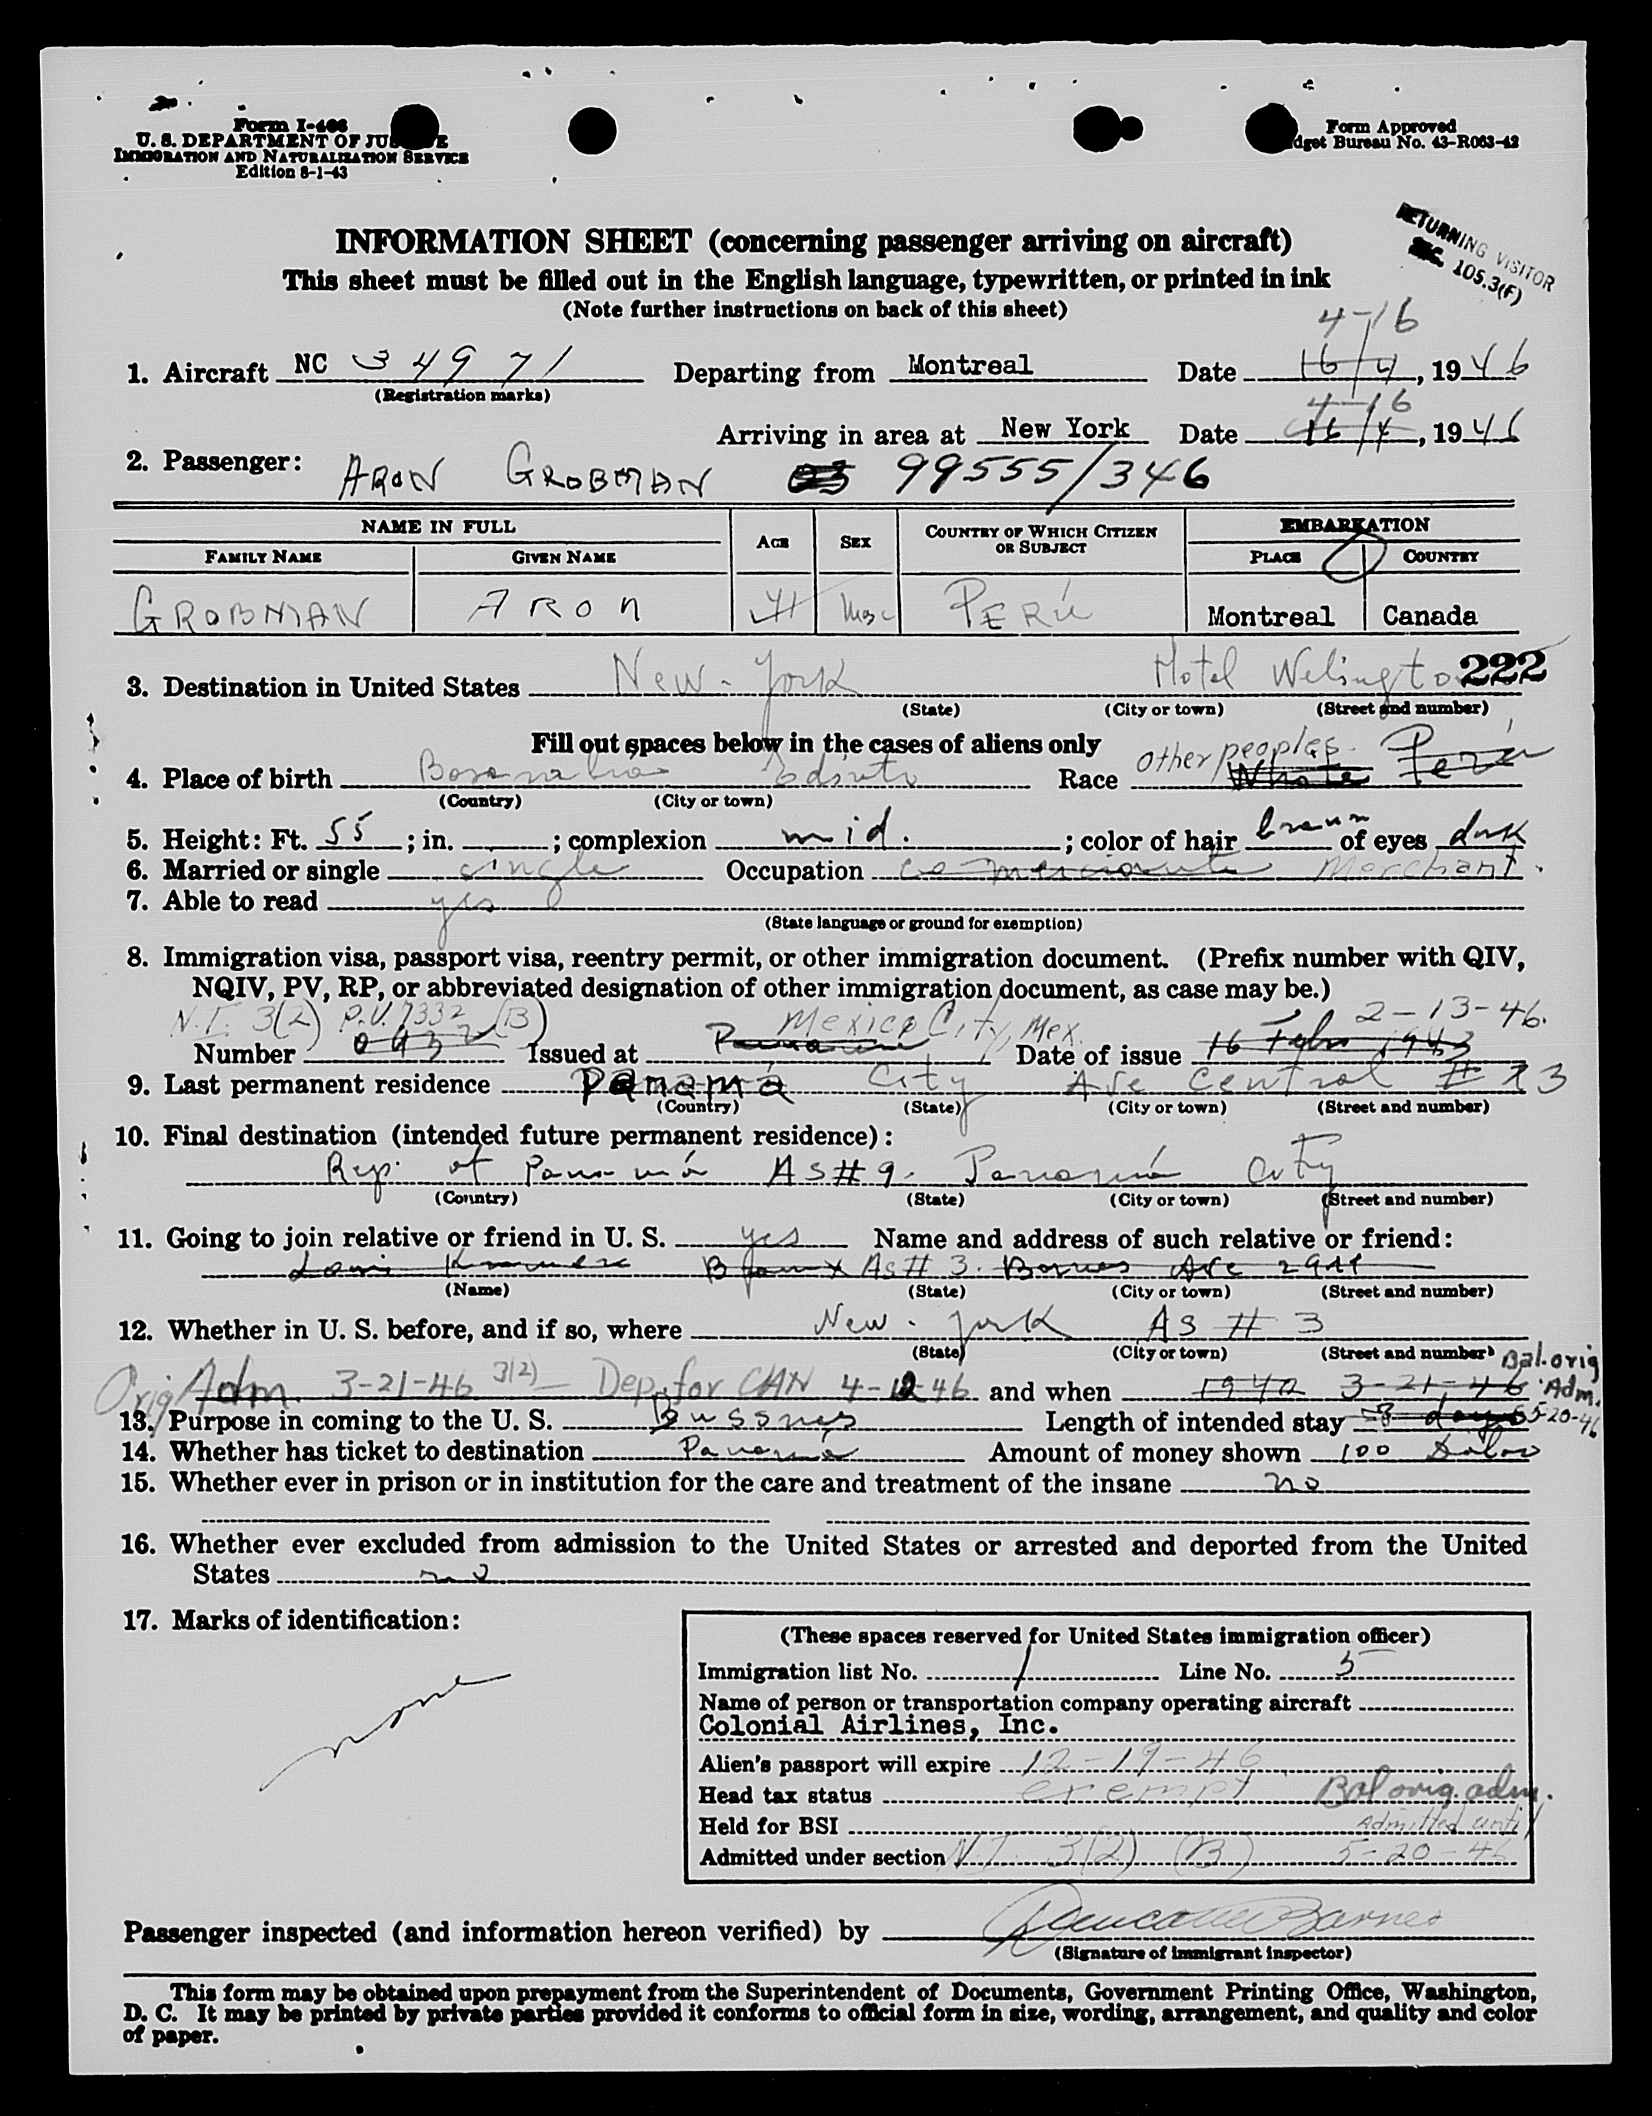 Form I-466
U. S. DEPARTMENT OF JU E
IMMIGRATION AND NATURALIZATION SERVICE
Edition 8-1-43
Form Approved
dget Bureau No. 43-R063-42
RETURNING VISITOR
SEC. 105.3(F)
INFORMATION SHEET (concerning passenger arriving on aircraft)
This sheet must be filled out in the English language, typewritten, or printed in ink
(Note further instructions on back of this sheet)
4-16
1. Aircraft NC 34971 Departing from Montreal Date 16/4, 1946
(Registration marks)
4-16
Arriving in area at New York Date 16/4, 1946
2. Passenger: ARON GROBMAN 99555/346
NAME IN FULL AGE SEX COUNTRY OF WHICH CITIZEN OR SUBJECT EMBARKATION
FAMILY NAME GIVEN NAME PLACE COUNTRY
GROBMAN ARON 41 Masc PERÚ Montreal Canada
3. Destination in United States New-York Hotel Welington 222
(State) (City or town) (Street and number)
Fill out spaces below in the cases of aliens only
other peoples. Perú
4. Place of birth Race White Perú
(Country) (City or town)
5. Height: Ft. 55; in. ; complexion mid.; color of hair braun of eyes dark
6. Married or single single Occupation comerciante Merchant.
7. Able to read yes
(State language or ground for exemption)
8. Immigration visa, passport visa, reentry permit, or other immigration document. (Prefix number with QIV,
NQIV, PV, RP, or abbreviated designation of other immigration document, as case may be.)
N.I. 3(2) P.V. 7332 (B) Mexico City, Mex. 2-13-46.
Number Issued at Panama Date of issue 16 1943
9. Last permanent residence Panamá City Ave Central # 23
(Country) (State) (City or town) (Street and number)
10. Final destination (intended future permanent residence):
Rep. of Panamá AS#9. Panamá City
(Country) (State) (City or town) (Street and number)
11. Going to join relative or friend in U. S. yes Name and address of such relative or friend:
As# 3. Ave
(Name) (State) (City or town) (Street and number)
12. Whether in U. S. before, and if so, where New-york AS # 3
(State) (City or town) (Street and number)
Orig Adm. 3-21-46 3(2)- Dep. for CAN 4-12-46 and when 1942 3-21-46 Bal. orig Adm.
13. Purpose in coming to the U. S. Bussnes Length of intended stay days 5-20-46
14. Whether has ticket to destination Panamá Amount of money shown 100 Dolar
15. Whether ever in prison or in institution for the care and treatment of the insane no
16. Whether ever excluded from admission to the United States or arrested and deported from the United
States no
17. Marks of identification:
none
(These spaces reserved for United States immigration officer)
Immigration list No. 1 Line No. 5
Name of person or transportation company operating aircraft
Colonial Airlines, Inc.
Alien's passport will expire 12-19-46
Head tax status exempt Bal orig. adm.
Held for BSI Admitted until
Admitted under section N.I. 3(2) (B) 5-20-46
Passenger inspected (and information hereon verified) by Barnes
(Signature of immigrant inspector)
This form may be obtained upon prepayment from the Superintendent of Documents, Government Printing Office, Washington,
D. C. It may be printed by private parties provided it conforms to official form in size, wording, arrangement, and quality and color
of paper.